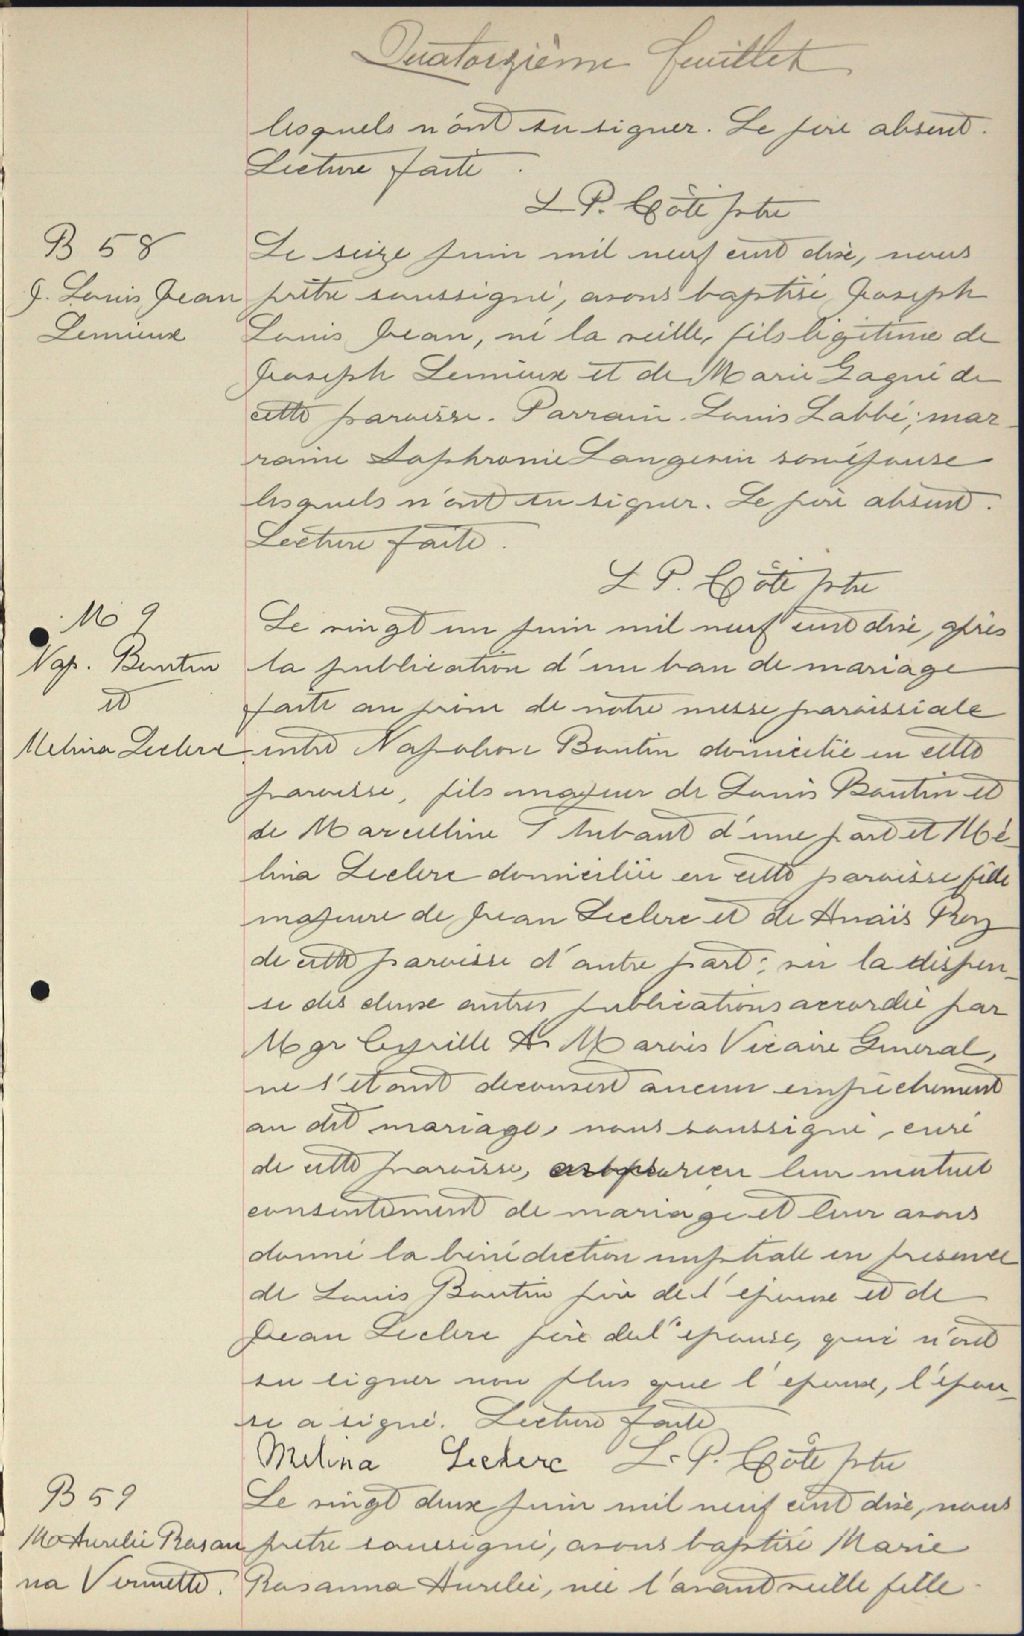 Quatorzième feuillet
lesquels n'ont su signer. Le père absent.
Lecture faite.
L P. Côté ptre
B 58
J. Louis Jean
Lemieux
Le seize juin mil neuf cent dix, nous
prêtre soussigné, avons baptisé Joseph
Louis Jean, né la veille, fils légitime de
Joseph Lemieux et de Marie Gagné de
cette paroisse. Parrain Louis Labbé; mar-
raine Sophronie Langevin son épouse
lesquels n'ont su signer. Le père absent.
Lecture faite.
L P. Côté ptre
M 9
Nap. Boutin
et
Melina Leclerc
Le vingt un juin mil neuf cent dix, après
la publication d'un ban de mariage
faite au prône de notre messe paroissiale
entre Napoléon Boutin domicilié en cette
paroisse, fils majeur de Louis Boutin et
de Marcelline Thibault d'une part et Mé-
lina Leclerc domiciliée en cette paroisse fille
majeure de Jean Leclerc et de Anaïs Roy
de cette paroisse d'autre part; vu la dispen-
se des deux autres publications accordée par
Mgr Cyrille A. Marois Vicaire General,
ne s'étant decouvert aucun empêchement
au dit mariage, nous soussigné, curé
de cette paroisse, reçu leur mutuel
consentement de mariage et leur avons
donné la bénédiction nuptiale en presence
de Louis Boutin père de l'époux et de
Jean Leclerc père de l'épouse, qui n'ont
su signer non plus que l'epoux, l'épou-
se a signé. Lecture faite
Melina Leclerc L. P. Côté ptre
B 59
M Aurelie Rosan
na Vermette.
Le vingt deux juin mil neuf cent dix, nous
prêtre soussigné, avons baptisé Marie
Rosanna Aurelie, née l'avant veille fille